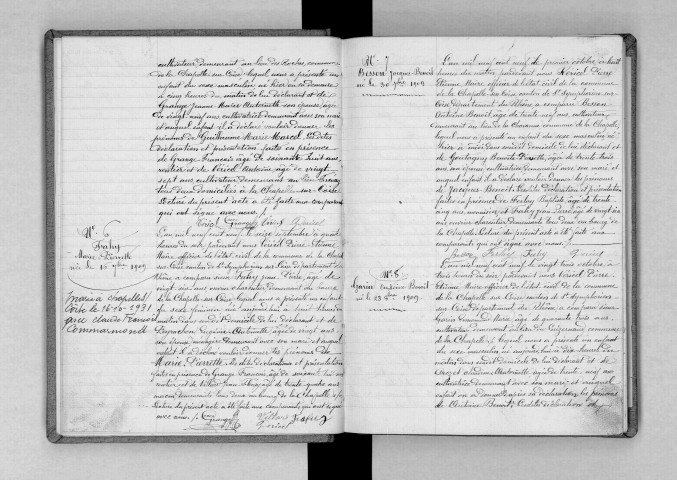 cultivateur demeurant au lieu des Roches, commune
de la Chapelle sur Coise, lequel nous a présenté un
enfant du sexe masculin né hier en sa demeure
à cinq heures du matin de lui déclarant et de
Grange Jeanne Marie Antoinette son épouse, âgée
de vingt neuf ans, cultivatrice demeurant avec son mari
et auquel enfant il a déclaré vouloir donner les
prénoms de Guillaume Marie Marcel. Les dites
déclaration et présentation faites en présence
de Grange François âgé de soixante huit ans
rentier et de Véricel Antoine âgé de vingt
sept ans cultivateur demeurant au lieu
tous deux domiciliés à la Chapelle sur Coise
Lecture du présent acte a été faite aux comparants
qui ont signé avec nous.
N° 6
Fahy
Marie Pierrette
née le 16 7bre 1909
Mariée à Chapelle s/
Coise le 16-10-1931
avec Claude François
Commarmond
L'an mil neuf cent neuf le seize septembre à quatre
heures du soir pardevant nous Véricel Pierre Etienne
Marie, officier de l'état civil de la commune de la Chapelle
sur Coise canton de St Symphorien sur Coise département du
Rhône, a comparu Fahy Jean Pierre, âgé de
vingt six ans ouvrier charentier demeurant au bourg
de la Chapelle sur Coise, lequel nous a présenté un enfant
du sexe féminin née aujourd'hui à huit heures du
matin dans son domicile de lui déclarant et de
Eugénie Antoinette, âgée de vingt ans
son épouse ménagère demeurant avec son mari et auquel
enfant il a déclaré vouloir donner les prénoms de
Marie Pierrette. Les dites déclaration et présentation
faites en présence de Grange François âgé de soixante huit ans
rentier et de Jean âgé de trente quatre ans
maçon demeurant tous deux au bourg de la Chapelle s/ Coise
Lecture du présent acte a été faite aux comparants qui ont signé
avec nous.
N° 7
Besson Jacques Benoit
né le 30 7bre 1909
L'an mil neuf cent neuf le premier octobre à huit
heures du matin pardevant nous Véricel Pierre
Etienne Marie officier de l'état civil de la commune
de la Chapelle sur Coise canton de St Symphorien sur
Coise département du Rhône a comparu Besson
Antoine Benoit, âgé de trente ans, cultivateur
demeurant au lieu de commune de la Chapelle,
lequel nous a présenté un enfant du sexe masculin né
hier à midi dans son dit domicile de lui déclarant et
de Benoite Pierrette, âgée de trente trois
ans son épouse cultivatrice demeurant avec son mari et
auquel enfant il a déclaré vouloir donner les prénoms
de Jacques Benoit. Les dites déclaration et présentation
faites en présence de Baptiste âgé de trente
cinq ans, et Fahy Jean Pierre âgé de vingt six
ans ouvrier charentier demeurant tous deux au bourg de
la Chapelle. Lecture du présent acte a été faite aux
comparants qui ont signé avec nous.
N° 8
Antoine Benoit
né le 23 8bre 1909
L'an mil neuf cent neuf le vingt trois octobre à
trois heures du soir pardevant nous Véricel Pierre
Etienne Marie officier de l'état civil de la commune
de la Chapelle sur Coise canton de St Symphorien
sur Coise département du Rhône, a comparu
Marie, âgé de quarante trois ans,
cultivateur demeurant au lieu commune
de la Chapelle, lequel nous a présenté un enfant
du sexe masculin né aujourd'hui à dix heures du
matin dans son dit domicile de lui déclarant et de
Antoinette âgée de trente neuf ans
cultivatrice demeurant avec son mari et auquel
enfant on a donné après sa déclaration les prénoms
de Antoine Benoit. Les dites déclaration et